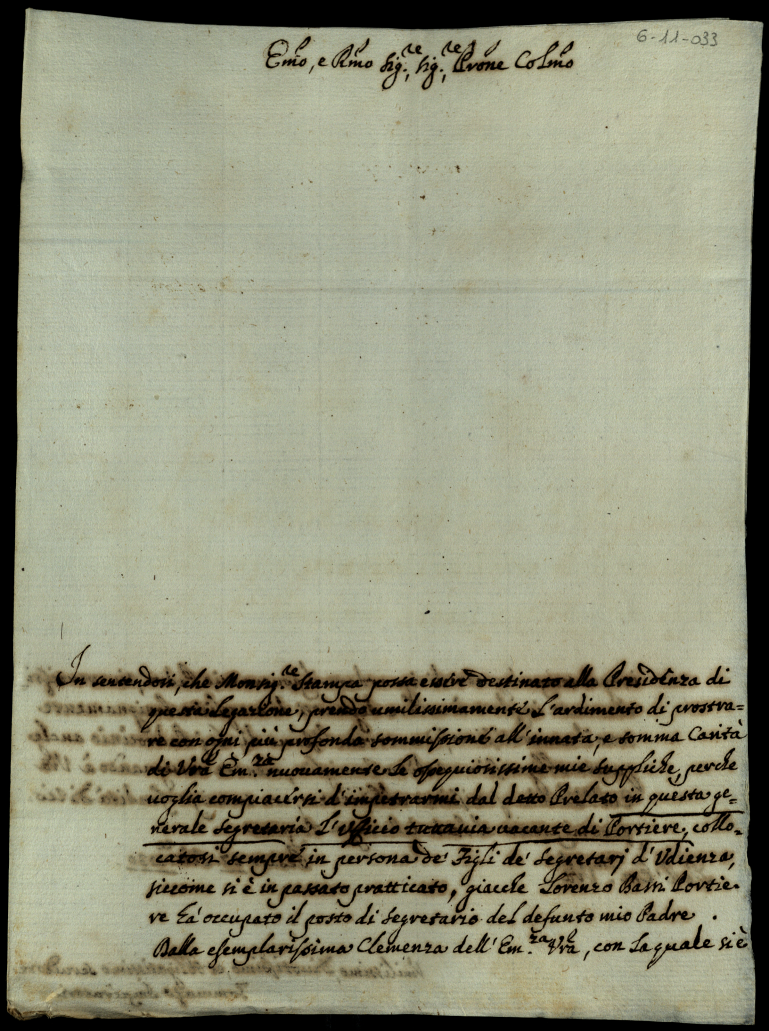 6-11-033
Emo, e Rmo Sig.re, Sig.re, Prone Colmo
In sentendosi, che Monsig.re Stampa possa essere destinato alla Presidenza di
questa Legazione, prendo umilissimamente l'ardimento di prostra=
re con ogni più profonda sommissione all'innata, e somma Carità
di Vra Em.za nuovamente le ossequiosissime mie suppliche, perche
voglia compiacersi d'impetrarmi dal detto Prelato in questa ge=
nerale Segretaria l'Ufficio tuttavia vacante di Portiere, collo=
catosi sempre in persona de' Figli de' Segretarj d'Udienza,
siccome si è in passato pratticato, giacche Lorenzo Bassi Portie=
re hà occupato il posto di Segretario del defunto mio Padre.
Dalla esemplarissima Clemenza dell'Em.za Vra, con la quale si è